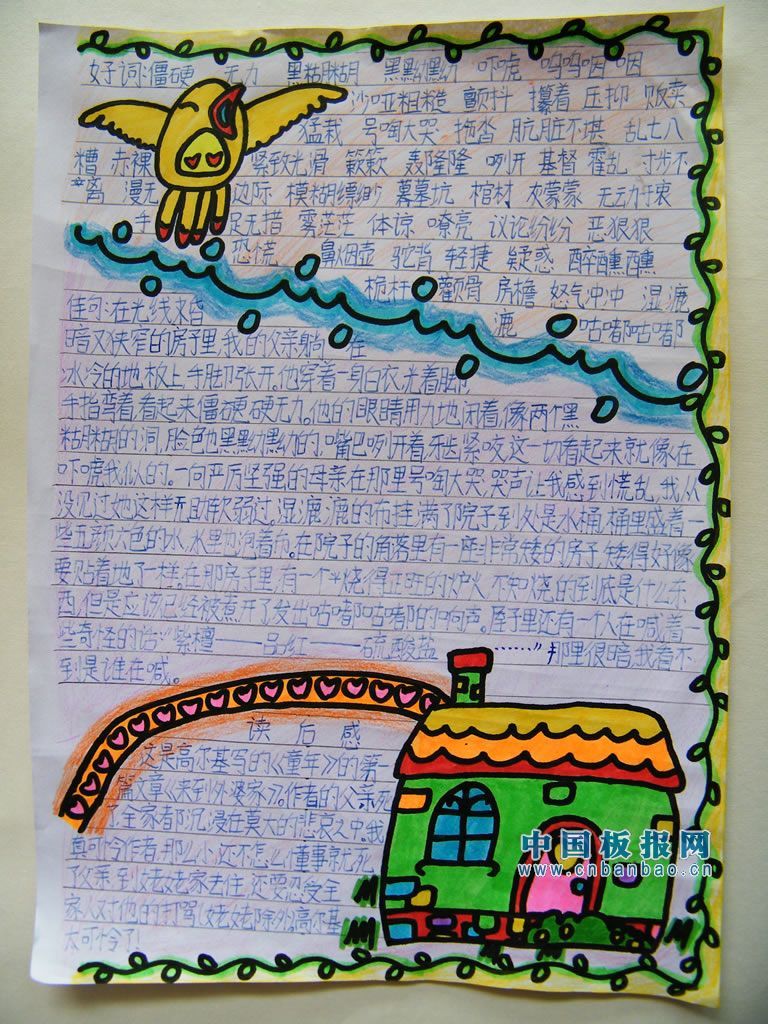 好词:僵硬 无力 黑糊糊 黑黝黝 吓唬 呜呜咽咽
沙哑粗糙 颤抖 攥着 压抑 贩卖
猛栽 号啕大哭 拖沓 肮脏不堪 乱七八
糟 赤裸 紧致光滑 簌簌 轰隆隆 咧开 基督 霍乱 寸步不
离 漫无 边际 模糊缥缈 墓坑 棺材 灰蒙蒙 无动于衷
手 足无措 雾茫茫 体谅 嘹亮 议论纷纷 恶狠狠
恐慌 鼻烟壶 驼背 轻捷 疑惑 醉醺醺
桅杆 颧骨 房檐 怒气冲冲 湿漉
漉 咕嘟咕嘟
佳句:在光线又昏
暗又狭窄的房子里,我的父亲躺在
冰冷的地板上,手脚张开。他穿着一身白衣,光着脚,
手指弯着,看起来僵硬无力。他的眼睛用力地闭着,像两个黑
糊糊的洞,脸色也黑黝黝的,嘴巴咧开着,牙齿紧咬,这一切看起来就像在
吓唬我似的。一向严厉坚强的母亲在那里号啕大哭,哭声让我感到慌乱,我从
没见过她这样无助软弱过。湿漉漉的布挂满了院子,到处是水桶,桶里盛着一
些五颜六色的水,水里也泡着布。在院子的角落里有一座非常矮的房子,矮得好像
要贴着地了一样。在那房子里,有一个烧得正旺的炉火,不知烧的到底是什么东
西,但是应该已经被煮开了,发出咕嘟咕嘟的响声。屋子里还有一个人在喊着
些奇怪的话:“紫檀——品红——硫酸盐 ……”那里很暗,我看不
到是谁在喊。
读后感
这是高尔基写的《童年》的第一
篇文章《来到外婆家》。作者的父亲死
了,全家都沉浸在莫大的悲哀之中。我
真可怜作者,那么小,还不怎么懂事就死
了父亲,到姥姥家去住,还要忍受全
家人对他的打骂(姥姥除外),高尔基
太可怜了!
中国板报网
www.cnbanbao.cn